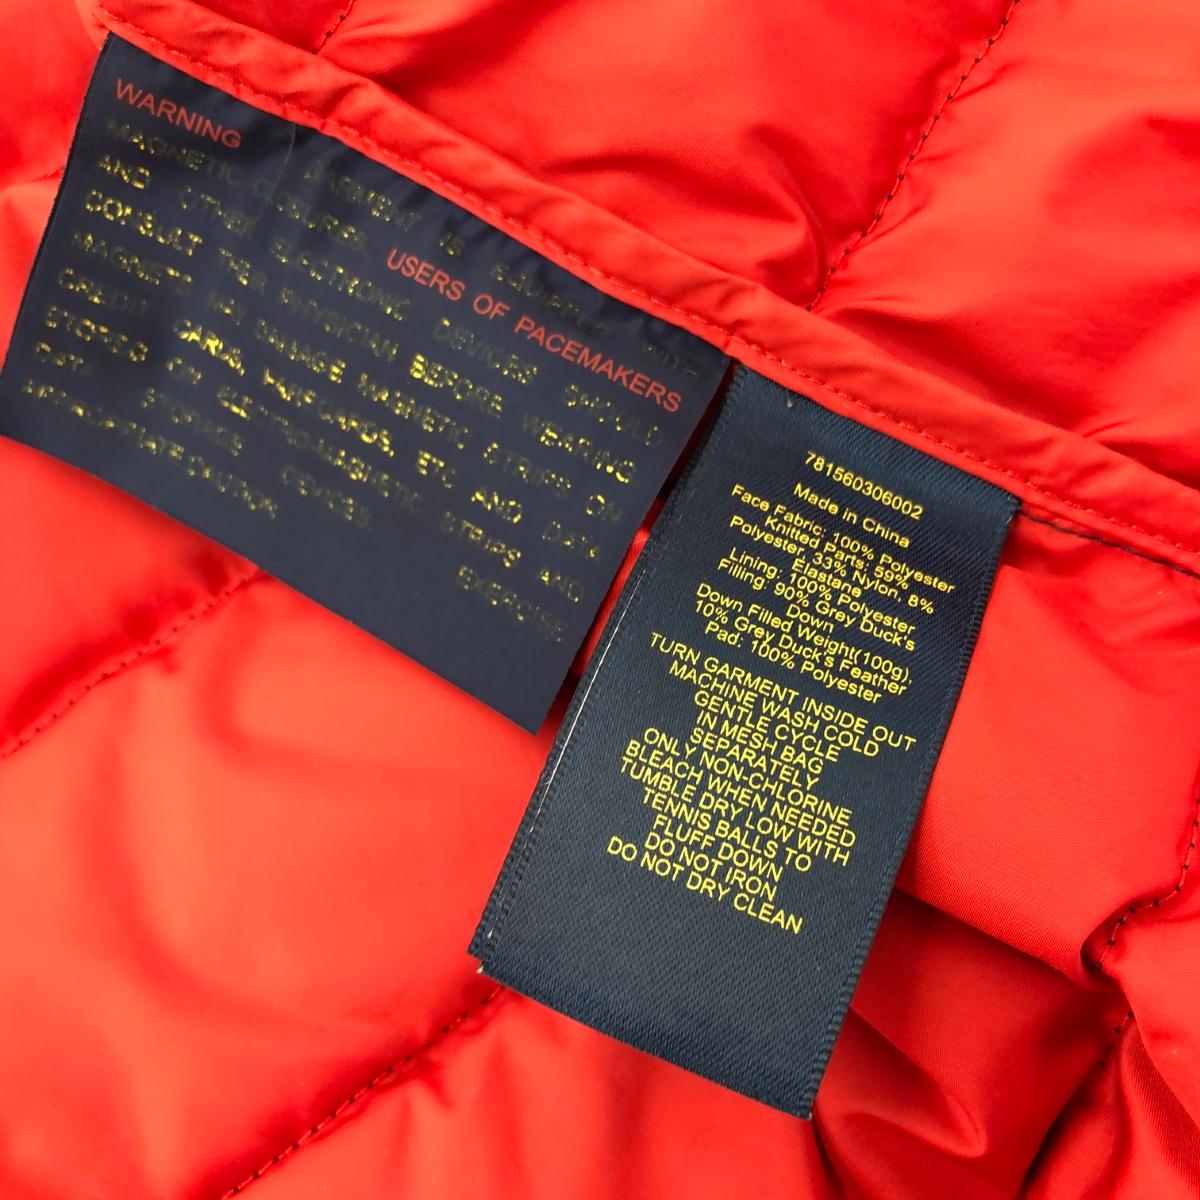 WARNING
GARMENT IS EQUIPPED WITH
MAGNETIC CLOSURES. USERS OF PACEMAKERS
AND OTHER ELECTRONIC DEVICES SHOULD
CONSULT THEIR PHYSICIAN BEFORE WEARING
MAGNETS DAMAGE MAGNETIC STRIPS ON
CREDIT CARDS, ETC AND DATA
STORAGE DEVICES.
781560306002
Made in China
Face Fabric: 100% Polyester
Knitted Parts: 59%
Polyester, 33% Nylon, 8%
Elastane
Lining: 100% Polyester
Filling: 90% Grey Duck's
Down
Down Filled Weight(100g),
10% Grey Duck's Feather
Pad: 100% Polyester
TURN GARMENT INSIDE OUT
MACHINE WASH COLD
GENTLE CYCLE
IN MESH BAG
SEPARATELY
ONLY NON-CHLORINE
BLEACH WHEN NEEDED
TUMBLE DRY LOW WITH
TENNIS BALLS TO
FLUFF DOWN
DO NOT IRON
DO NOT DRY CLEAN